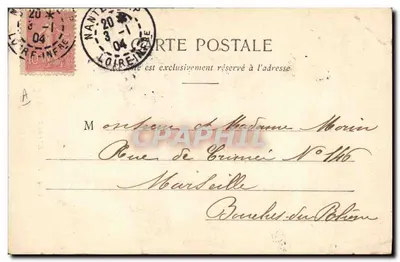 20 *
3 -1
04
LOIRE-INFRE
NANTES
20 *
3 -1
04
LOIRE-INFRE
CARTE POSTALE
est exclusivement réservé à l'adresse
A
CPAPHIL
Monsieur et Madame Morin
Rue de Crimée N° 146
Marseille
Bouches-du-Rhône